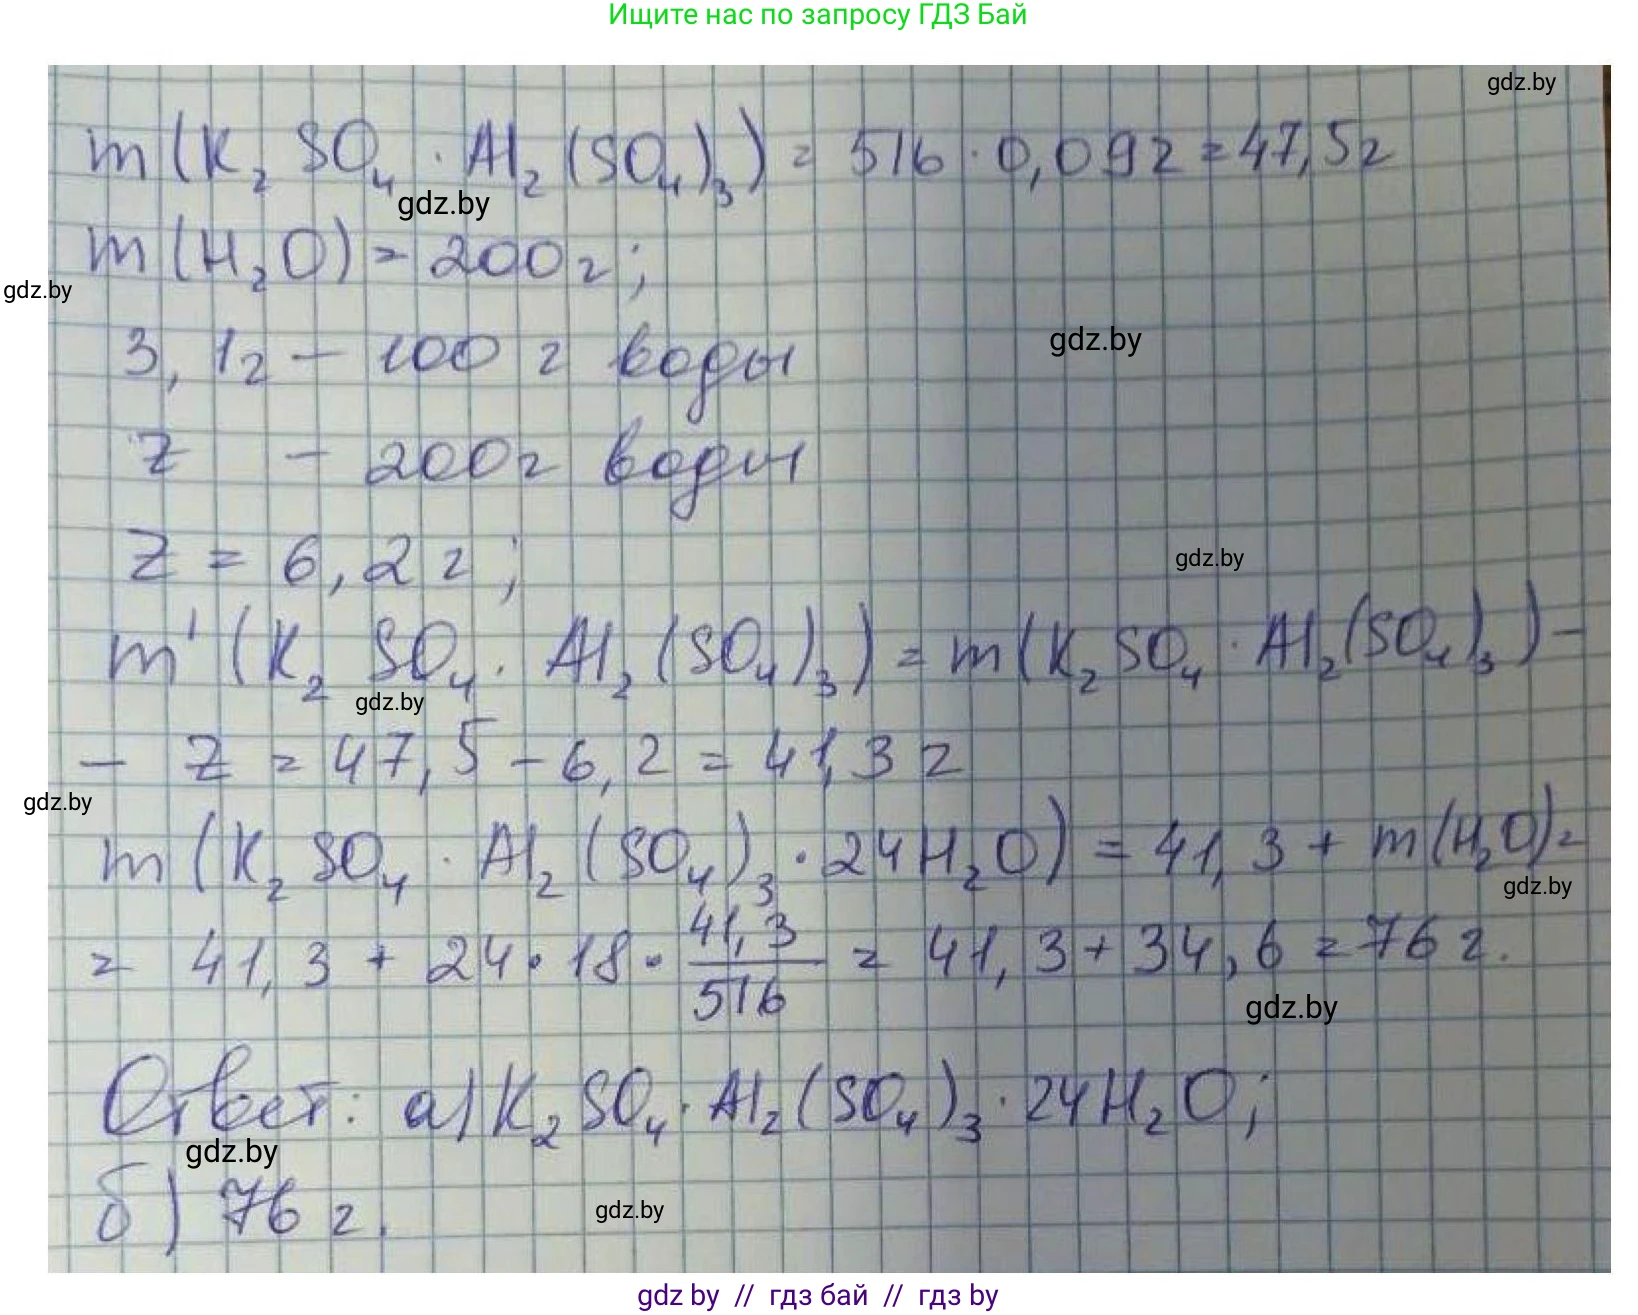 Ищите нас по запросу ГДЗ Бай
gdz.by
m(K₂SO₄ · Al₂(SO₄)₃) = 516 · 0,092 = 47,5г
gdz.by
m(H₂O) = 200г;
gdz.by
3,1г – 100 г воды
gdz.by
Z – 200г воды
Z = 6,2 г;
gdz.by
m'(K₂SO₄ · Al₂(SO₄)₃) = m(K₂SO₄ · Al₂(SO₄)₃) –
gdz.by
– Z = 47,5 – 6,2 = 41,3 г
gdz.by
m(K₂SO₄ · Al₂(SO₄)₃ · 24H₂O) = 41,3 + m(H₂O) =
gdz.by
= 41,3 + 24 · 18 · 41,3/516 = 41,3 + 34,6 = 76 г.
gdz.by
Ответ: а) K₂SO₄ · Al₂(SO₄)₃ · 24H₂O;
gdz.by
б) 76 г.
gdz.by
gdz.by // гдз бай // гдз by